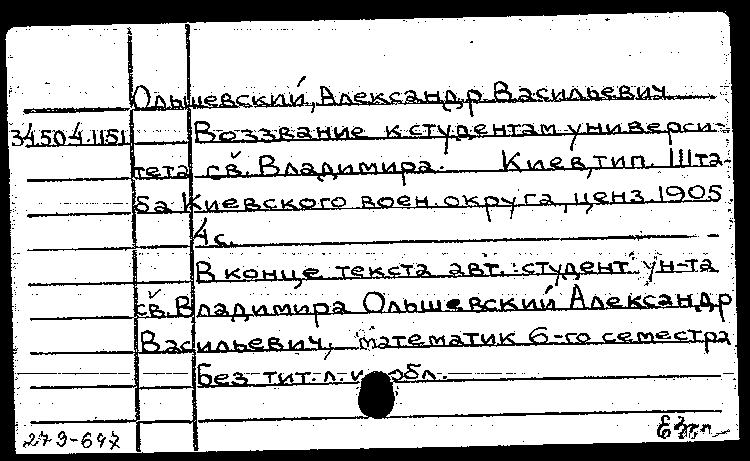 Ольшевский, Александр Васильевич
34.50.4.1151 Воззвание к студентам универси-
тета св. Владимира. Киев, тип. Шта-
ба Киевского воен. округа, ценз. 1905
4 с.
В конце текста авт.: студент ун-та
св. Владимира Ольшевский Александр
Васильевич, математик 6-го семестра
Без тит. л. и обл.
279-697